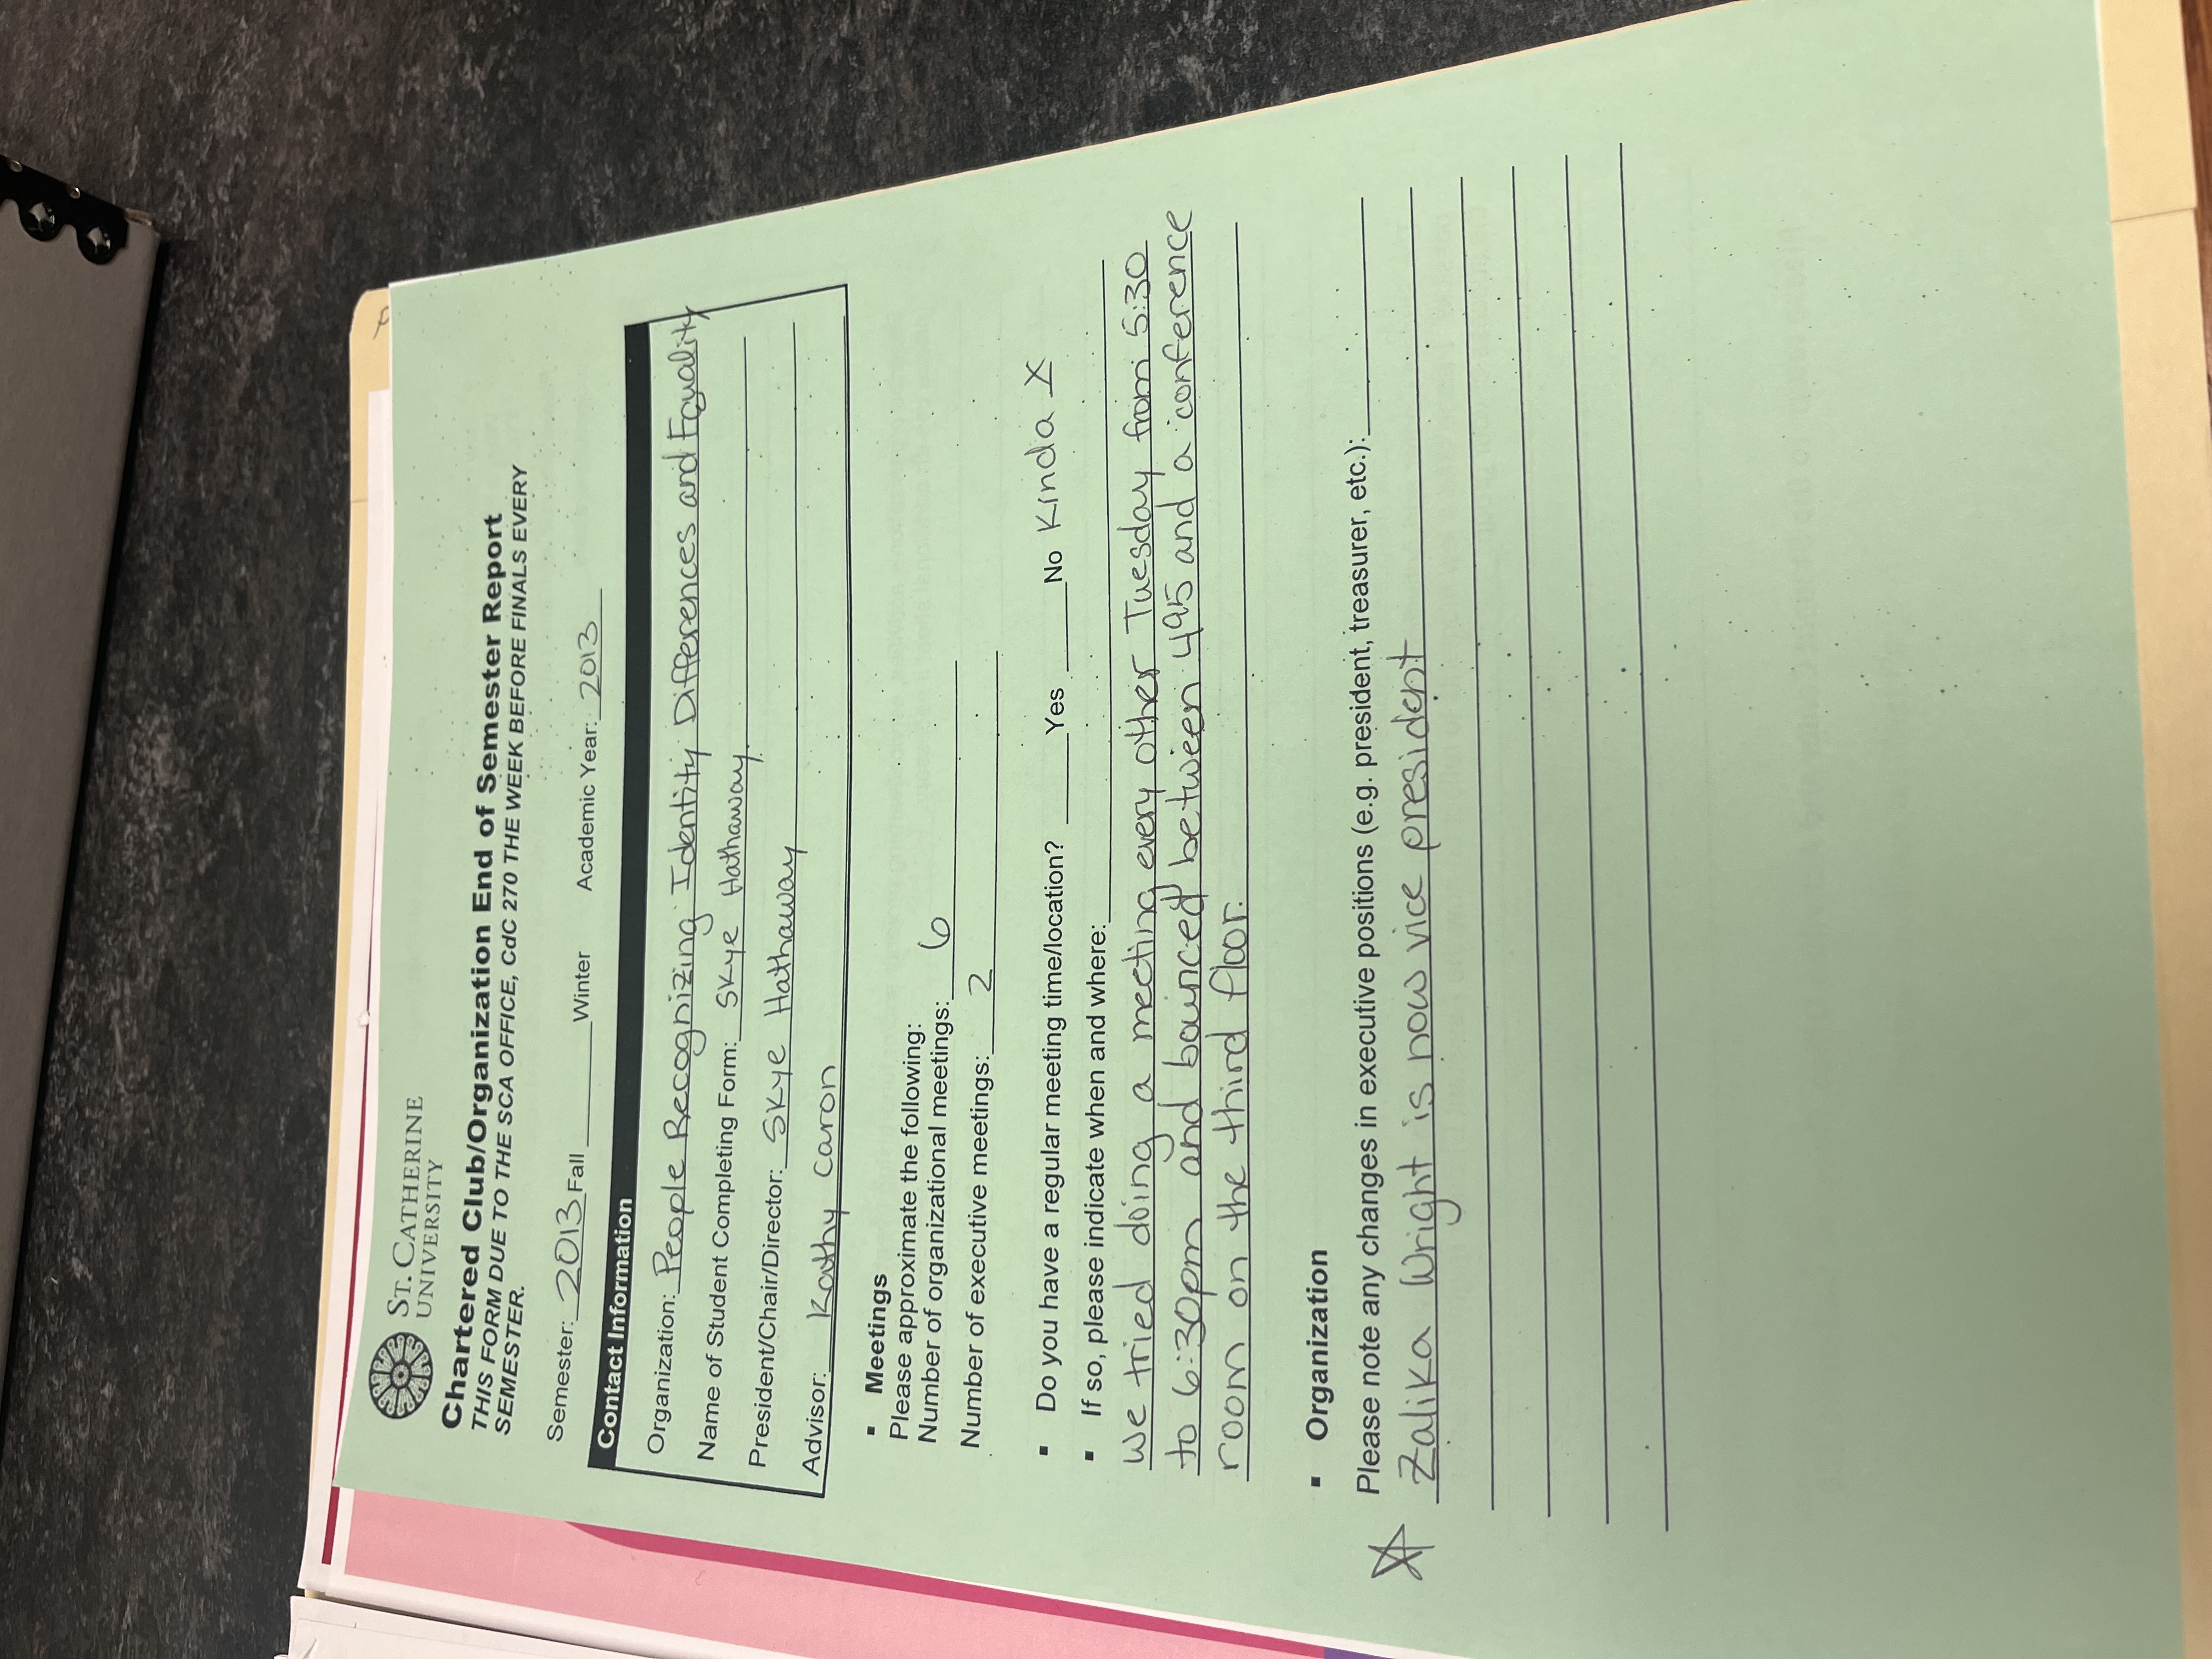 ST. CATHERINE
UNIVERSITY
Chartered Club/Organization End of Semester Report
THIS FORM DUE TO THE SCA OFFICE, CdC 270 THE WEEK BEFORE FINALS EVERY
SEMESTER.
Semester: 2013 Fall ________ Winter Academic Year: 2013
Contact Information
Organization: People Recognizing Identity Differences and Equality
Name of Student Completing Form: Skye Hathaway
President/Chair/Director: Skye Hathaway
Advisor: Kathy Caron
▪ Meetings
Please approximate the following:
Number of organizational meetings: 6
Number of executive meetings: 2
▪ Do you have a regular meeting time/location? ______Yes ______No Kinda X
▪ If so, please indicate when and where:
We tried doing a meeting every other Tuesday from 5:30
to 6:30pm and bounced between 495 and a conference
room on the third floor.
▪ Organization
Please note any changes in executive positions (e.g. president, treasurer, etc.):
☆ Zalika Wright is now vice president